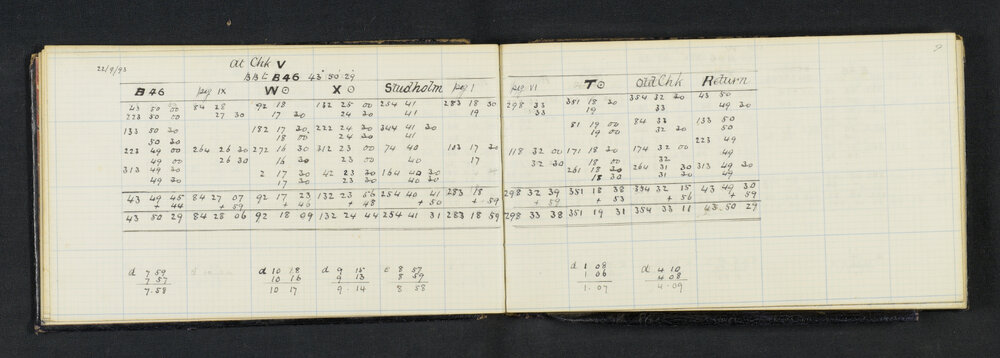 22/9/93
at Chk V
B46 43° 50' 29"
B46 peg IX W⊙ X⊙ Studholm peg I peg VI T⊙ Old Chk Return
43 50 00 84 28 92 18 132 25 00 254 41 283 18 30 298 33 351 18 30 354 32 30 43 50
223 50 00 27 30 17 30 24 30 41 19 33 19 33 49 30
133 50 30 182 17 30 222 24 30 344 41 30 81 19 00 84 33 133 50
50 30 18 00 24 30 41 19 00 32 30 50
223 49 00 264 26 30 272 16 30 312 23 00 74 40 103 17 30 118 32 00 171 18 30 174 32 00 223 49
49 00 26 30 16 30 23 00 40 17 32 30 18 00 32 49
313 49 30 2 17 30 42 23 30 164 40 30 261 18 30 264 31 30 313 49 30
49 30 17 30 23 30 40 30 18 30 31 30 49
43 49 45 84 27 07 92 17 23 132 23 56 254 40 41 283 18 298 32 39 351 18 38 354 32 15 43 49 30
+ 44 + 59 + 46 + 48 + 50 + 59 + 59 + 53 + 56 + 59
43 50 29 84 28 06 92 18 09 132 24 44 254 41 31 283 18 59 298 33 38 351 19 31 354 33 11 43 50 29
d 7 59 d 10 18 d 9 15 c 8 57 d 1 08 d 4 10
7 57 10 16 9 13 8 59 1 06 4 08
7.58 10 17 9.14 8 58 1.07 4.09